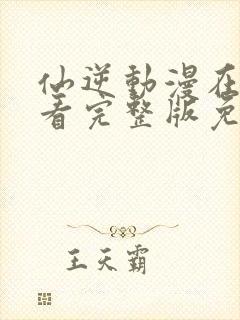 仙逆動漫在
看完整版免
王天霸